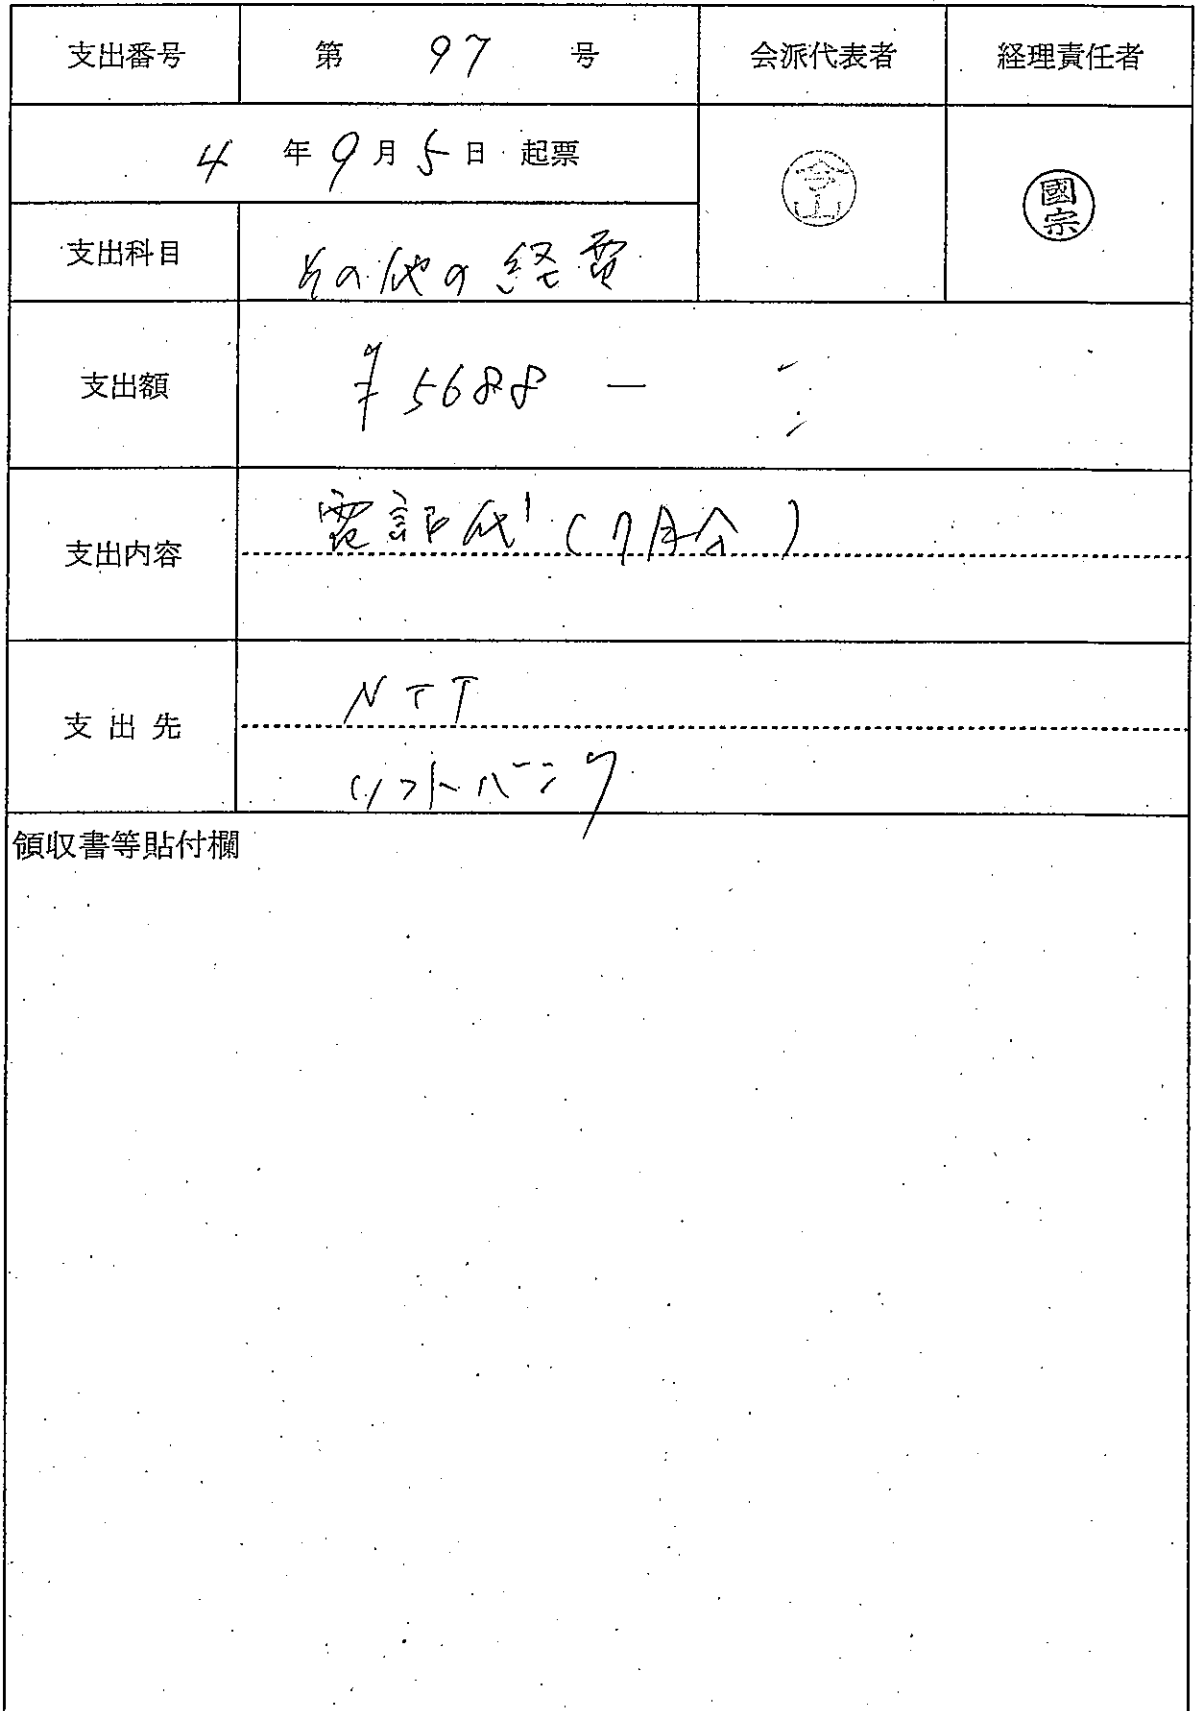 支出番号 第 97 号 会派代表者 経理責任者
4 年 9 月 5 日 起票
今山 國宗
支出科目 その他の経費
支出額 ¥5688 —
支出内容 電話代 (7月分)
支出先 NTT
ソフトバンク
領収書等貼付欄